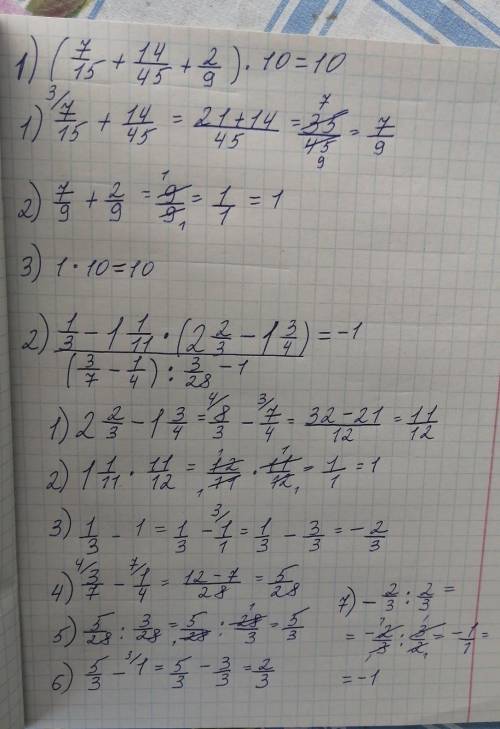 1) (7/15 + 14/45 + 2/9) · 10 = 10
1) 3/ 7/15 + 14/45 = (21+14)/45 = 35/45 7 9 = 7/9
2) 7/9 + 2/9 = 9/9 1 1 = 1/1 = 1
3) 1 · 10 = 10
2) (1/3 - 1 1/11 · (2 2/3 - 1 3/4)) / ((3/7 - 1/4) : 3/28 - 1) = -1
1) 2 2/3 - 1 3/4 = 4/ 8/3 - 3/ 7/4 = (32-21)/12 = 11/12
2) 1 1/11 · 11/12 = 12/11 1 1 · 11/12 1 1 = 1/1 = 1
3) 1/3 - 1 = 1/3 - 3/ 1/1 = 1/3 - 3/3 = -2/3
4) 4/ 3/7 - 7/ 1/4 = (12-7)/28 = 5/28
5) 5/28 : 3/28 = 5/28 1 : 28/3 1 = 5/3
6) 5/3 - 3/ 1 = 5/3 - 3/3 = 2/3
7) -2/3 : 2/3 =
= -2/3 1 1 : 3/2 1 1 = -1/1 =
= -1